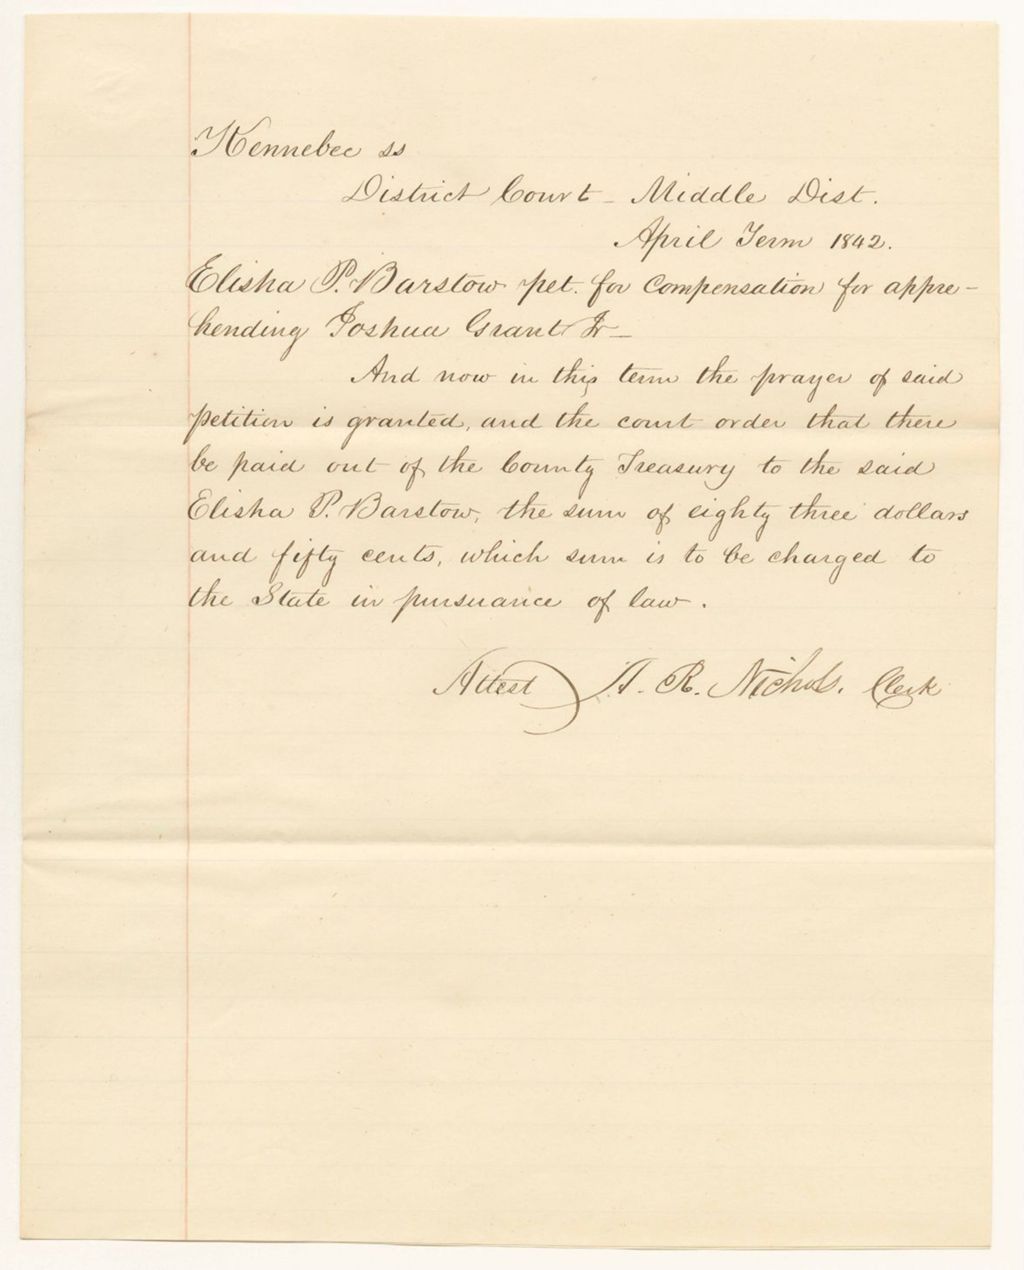 Kennebec ss
District Court - Middle Dist.
April Term 1842.
Elisha P. Barstow pet. for Compensation for appre-
hending Joshua Grant Jr -
And now in this term the prayer of said
petition is granted, and the court order that there
be paid out of the County Treasury to the said
Elisha P. Barstow, the sum of eighty three dollars
and fifty cents, which sum is to be charged to
the State in pursuance of law.
Attest A. R. Nichols. Clerk